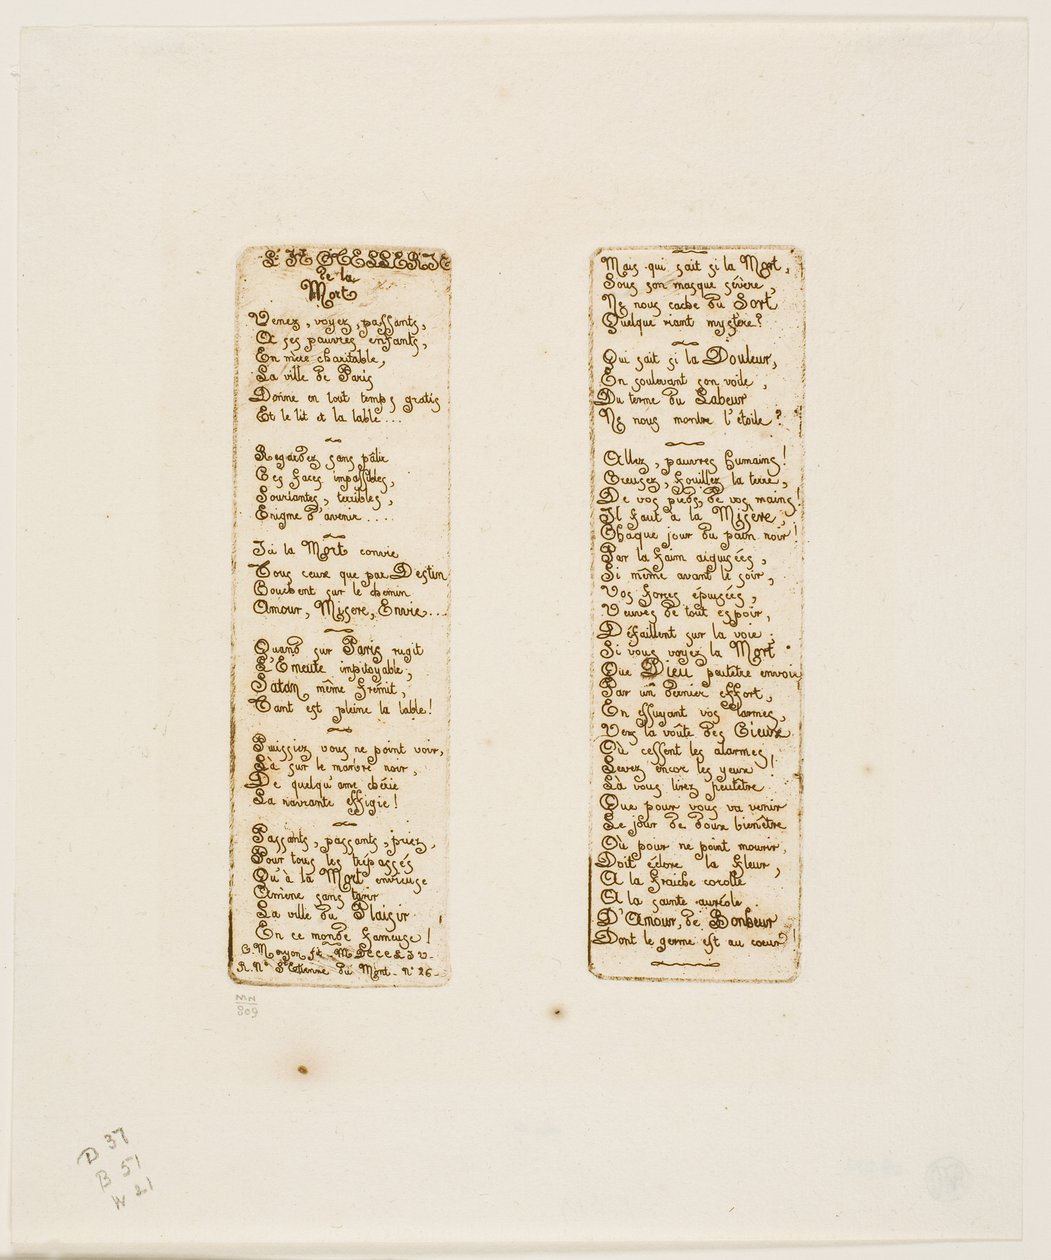 L'HOTELLERIE
De la
Mort
Venez, voyez, passants,
A ses pauvres enfants,
En mère charitable,
La ville de Paris
Donne en tout temps gratis
Et le lit et la table...
Regardez sans pâlir
Ces faces impassibles,
Souriantes, terribles,
Enigme d'avenir....
Ici la Mort convie
Tous ceux que par Destin
Couchent sur le chemin
Amour, Misere, Envie...
Quand sur Paris rugit
L'Emeute impitoyable,
Satan même frémit,
Tant est pleine la table!
Puissiez vous ne point voir,
Là sur le marbre noir,
De quelqu'ame chérie
La navrante effigie!
Passants, passants, priez,
Pour tous les trépassés
Qu'à la Mort envieuse
Amène sans tarir
La ville du Plaisir
En ce monde fameuse!
C. Meryon ft - MDCCCLIV -
R. Ne St Etienne du Mont - No 26 -
Mais qui sait si la Mort,
Sous son masque sévère,
Ne nous cache du Sort
Quelque riant mystère?
Qui sait si la Douleur,
En soulevant son voile,
Du terme du Labeur
Ne nous montre l'étoile?
Allez, pauvres humains!
Creusez, fouillez la terre,
De vos pieds, de vos mains!
Il faut à la Misère,
Chaque jour du pain noir!
Par la faim aiguisées,
Si même avant le soir,
Vos forces épuisées,
Veuves de tout espoir,
Défaillent sur la voie.
Si vous voyez la Mort
Que Dieu peutêtre envoie
Par un dernier effort,
En essuyant vos larmes,
Vers la voûte des Cieux
Où cessent les alarmes,
Levez encor les yeux!
Là vous lirez peutêtre
Que pour vous va venir
Le jour de doux bienêtre
Où pour ne point mourir,
Doit éclore la fleur,
A la fraiche corolle
A la sainte auréole
D'Amour, de Bonheur
Dont le germe est au coeur!
MN
809
D 37
B 51
W 21